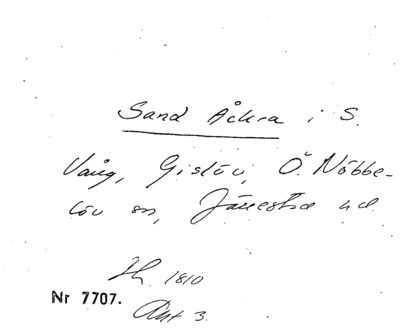 Sand Åckra i S.
Vång, Gislöv, Ö. Nöbbe-
löv sn, Järrestad hd
Jh. 1810
Nr 7707.
Akt 3.